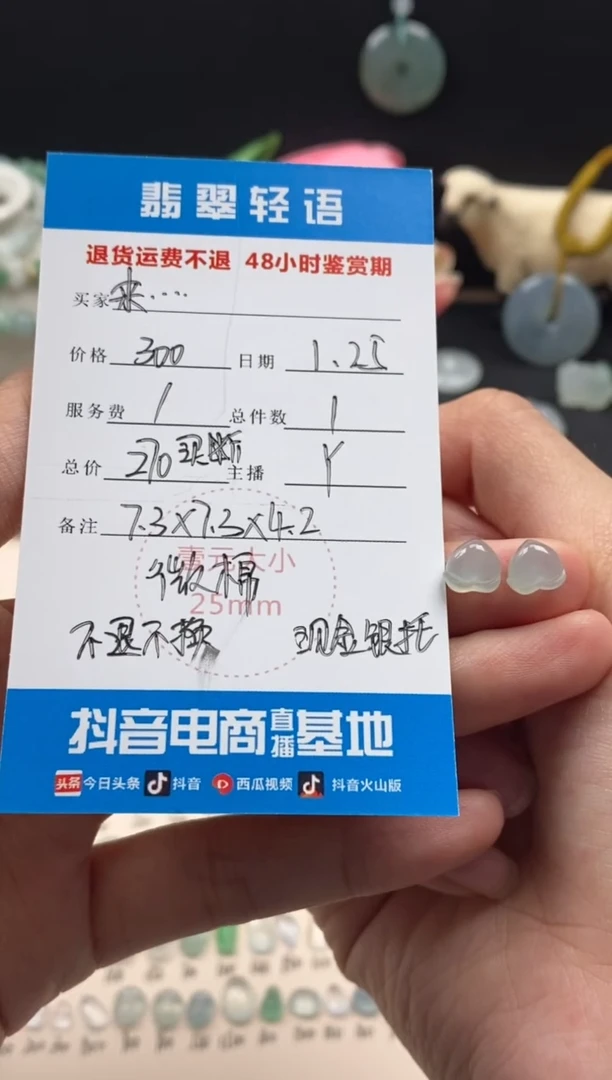 翡翠轻语
退货运费不退 48小时鉴赏期
买家 来....
价格 300 日期 1.25
服务费 / 总件数 1
总价 270 买断 主播 Y
备注 7.3×7.3×4.2
壹元大小
微棉
25mm
不退不换 现金银托
抖音电商直播基地
头条 今日头条 抖音 西瓜视频 抖音火山版